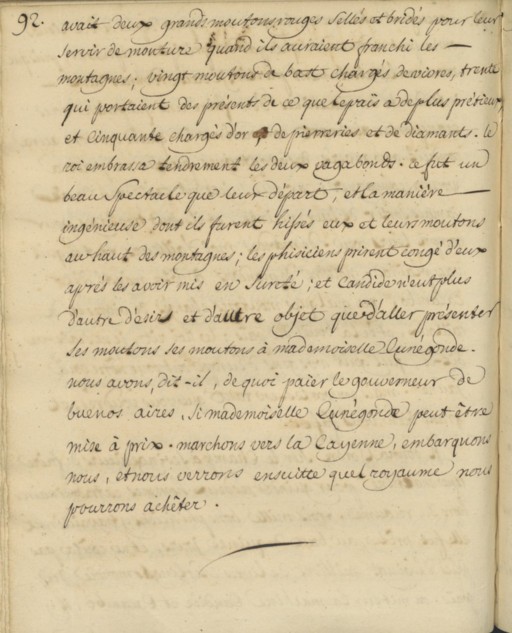 92.
avait deux grands moutons rouges sellés et bridés pour leur
servir de monture quand ils auraient franchi les —
montagnes; vingt moutons de bast chargés de vivres, trente
qui portaient des présents de ce que le païs a de plus prétieux
et cinquante chargés d'or de pierreries et de diamants. le
roi embrassa tendrement les deux vagabonds. ce fut un
beau spectacle que leur départ, et la manière —
ingénieuse dont ils furent hissés eux et leurs moutons
au haut des montagnes; les phisiciens prirent congé d'eux
aprés les avoir mis en sureté; et Candide n'eut plus
d'autre désir et d'autre objet que d'aller présenter
ses moutons ses moutons à mademoiselle Cunégonde.
nous avons, dit-il, de quoi païer le gouverneur de
buenos aires, si mademoiselle Cunégonde peut être
mise à prix. marchons vers la Cayenne, embarquons
nous, et nous verrons ensuitte quel royaume nous
pourrons achêter.